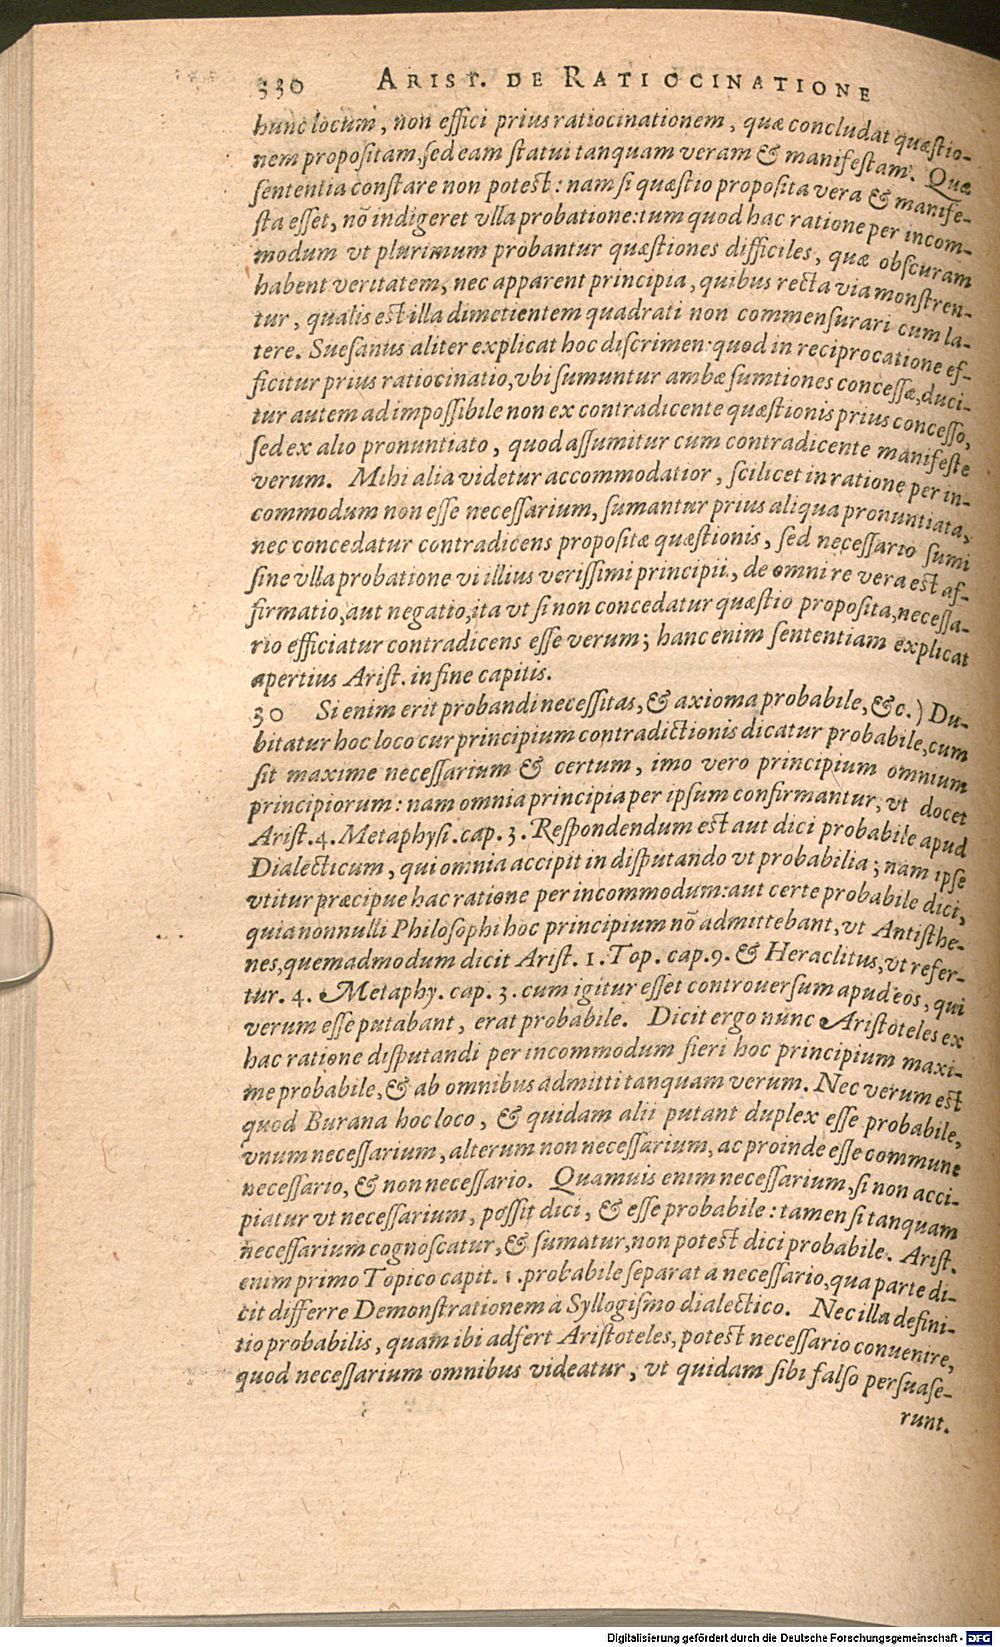 330 ARIST. DE RATIOCINATIONE
hunc locum, non effici prius ratiocinationem, quæ concludat quæstio-
nem propositam, sed eam statui tanquam veram & manifestam. Quæ
sententia constare non potest: nam si quæstio proposita vera & manife-
sta esset, nõ indigeret vlla probatione: tum quod hac ratione per incom-
modum vt plurimum probantur quæstiones difficiles, quæ obscuram
habent veritatem, nec apparent principia, quibus recta via monstren-
tur, qualis est illa dimetientem quadrati non commensurari cum la-
tere. Suesanus aliter explicat hoc discrimen: quod in reciprocatione ef-
ficitur prius ratiocinatio, vbi sumuntur ambæ sumtiones concessæ, duci-
tur autem ad impossibile non ex contradicente quæstionis prius concesso,
sed ex alio pronuntiato, quod assumitur cum contradicente manifeste
verum. Mihi alia videtur accommodatior, scilicet in ratione per in-
commodum non esse necessarium, sumantur prius aliqua pronuntiata,
nec concedatur contradicens propositæ quæstionis, sed necessario sumi
sine vlla probatione vi illius verissimi principii, de omni re vera est af-
firmatio, aut negatio, ita vt si non concedatur quæstio proposita, necessa-
rio efficiatur contradicens esse verum; hanc enim sententiam explicat
apertius Arist. in fine capitis.
30 Si enim erit probandi necessitas, & axioma probabile, &c.) Du-
bitatur hoc loco cur principium contradictionis dicatur probabile, cum
sit maxime necessarium & certum, imo vero principium omnium
principiorum: nam omnia principia per ipsum confirmantur, vt docet
Arist. 4. Metaphysi. cap. 3. Respondendum est aut dici probabile apud
Dialecticum, qui omnia accipit in disputando vt probabilia; nam ipse
vtitur præcipue hac ratione per incommodum: aut certe probabile dici,
quia nonnulli Philosophi hoc principium nõ admittebant, vt Antisthe-
nes, quemadmodum dicit Arist. 1. Top. cap. 9. & Heraclitus, vt refer-
tur. 4. Metaphy. cap. 3. cum igitur esset controuersum apud eos, qui
verum esse putabant, erat probabile. Dicit ergo nunc Aristoteles ex
hac ratione disputandi per incommodum fieri hoc principium maxi-
me probabile, & ab omnibus admitti tanquam verum. Nec verum est
quod Burana hoc loco, & quidam alii putant duplex esse probabile,
vnum necessarium, alterum non necessarium, ac proinde esse commune
necessario, & non necessario. Quamuis enim necessarium, si non acci-
piatur vt necessarium, possit dici, & esse probabile: tamen si tanquam
necessarium cognoscatur, & sumatur, non potest dici probabile. Arist.
enim primo Topico capit. 1. probabile separat a necessario, qua parte di-
cit differre Demonstrationem à Syllogismo dialectico. Nec illa defini-
tio probabilis, quam ibi adfert Aristoteles, potest necessario conuenire,
quod necessarium omnibus videatur, vt quidam sibi falso persuase-
runt.
Digitalisierung gefördert durch die Deutsche Forschungsgemeinschaft - DFG